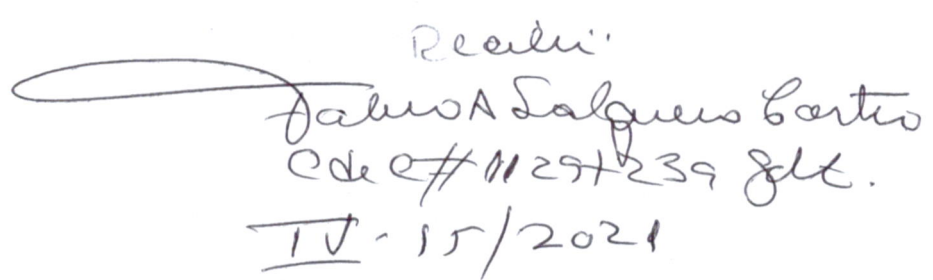 Recibí:
Fabio A Salguero Castro
C de C # 11297239 Gdt.
IV - 15/2021